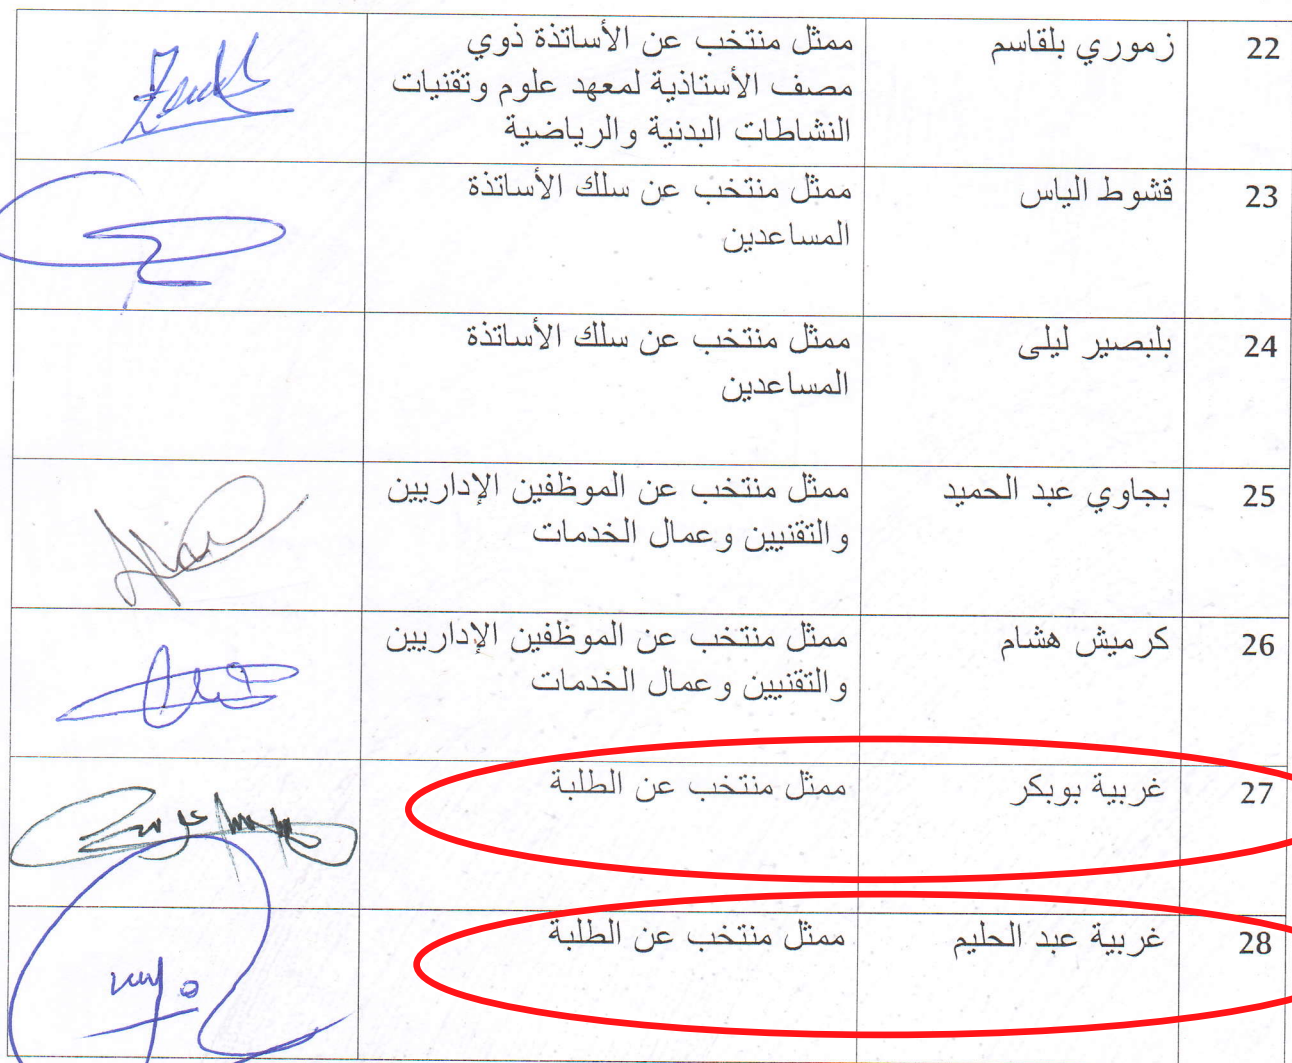 22 زموري بلقاسم ممثل منتخب عن الأساتذة ذوي
مصف الأستاذية لمعهد علوم وتقنيات
النشاطات البدنية والرياضية
23 قشوط الياس ممثل منتخب عن سلك الأساتذة
المساعدين
24 بلبصير ليلى ممثل منتخب عن سلك الأساتذة
المساعدين
25 بجاوي عبد الحميد ممثل منتخب عن الموظفين الإداريين
والتقنيين وعمال الخدمات
26 كرميش هشام ممثل منتخب عن الموظفين الإداريين
والتقنيين وعمال الخدمات
27 غربية بوبكر ممثل منتخب عن الطلبة
28 غربية عبد الحليم ممثل منتخب عن الطلبة